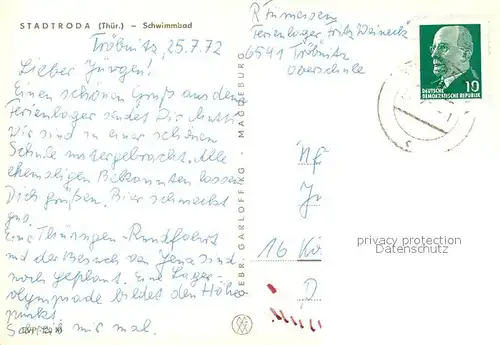 STADTRODA (Thür.) – Schwimmbad
Tröbnitz, 25.7.72
Lieber Jürgen!
Einen schönen Gruß aus dem
Ferienlager sendet Dir Mutti
Wir sind in einer schönen
Schule untergebracht. Alle
ehemaligen Bekannten lassen
Dich grüßen. Bier schmeckt
gut.
Eine Thüringen-Rundfahrt
und der Besuch von Jena sind
noch geplant. Eine Lager-
olympiade bildet den Höhe
punkt.
Schreib mir mal.
GEBR. GARLOFF KG - MAGDEBURG
Ferienlager Fritz Weineck
6541 Tröbnitz
Oberschule
DEUTSCHE
DEMOKRATISCHE REPUBLIK
10
16 Kö
privacy protection
Datenschutz